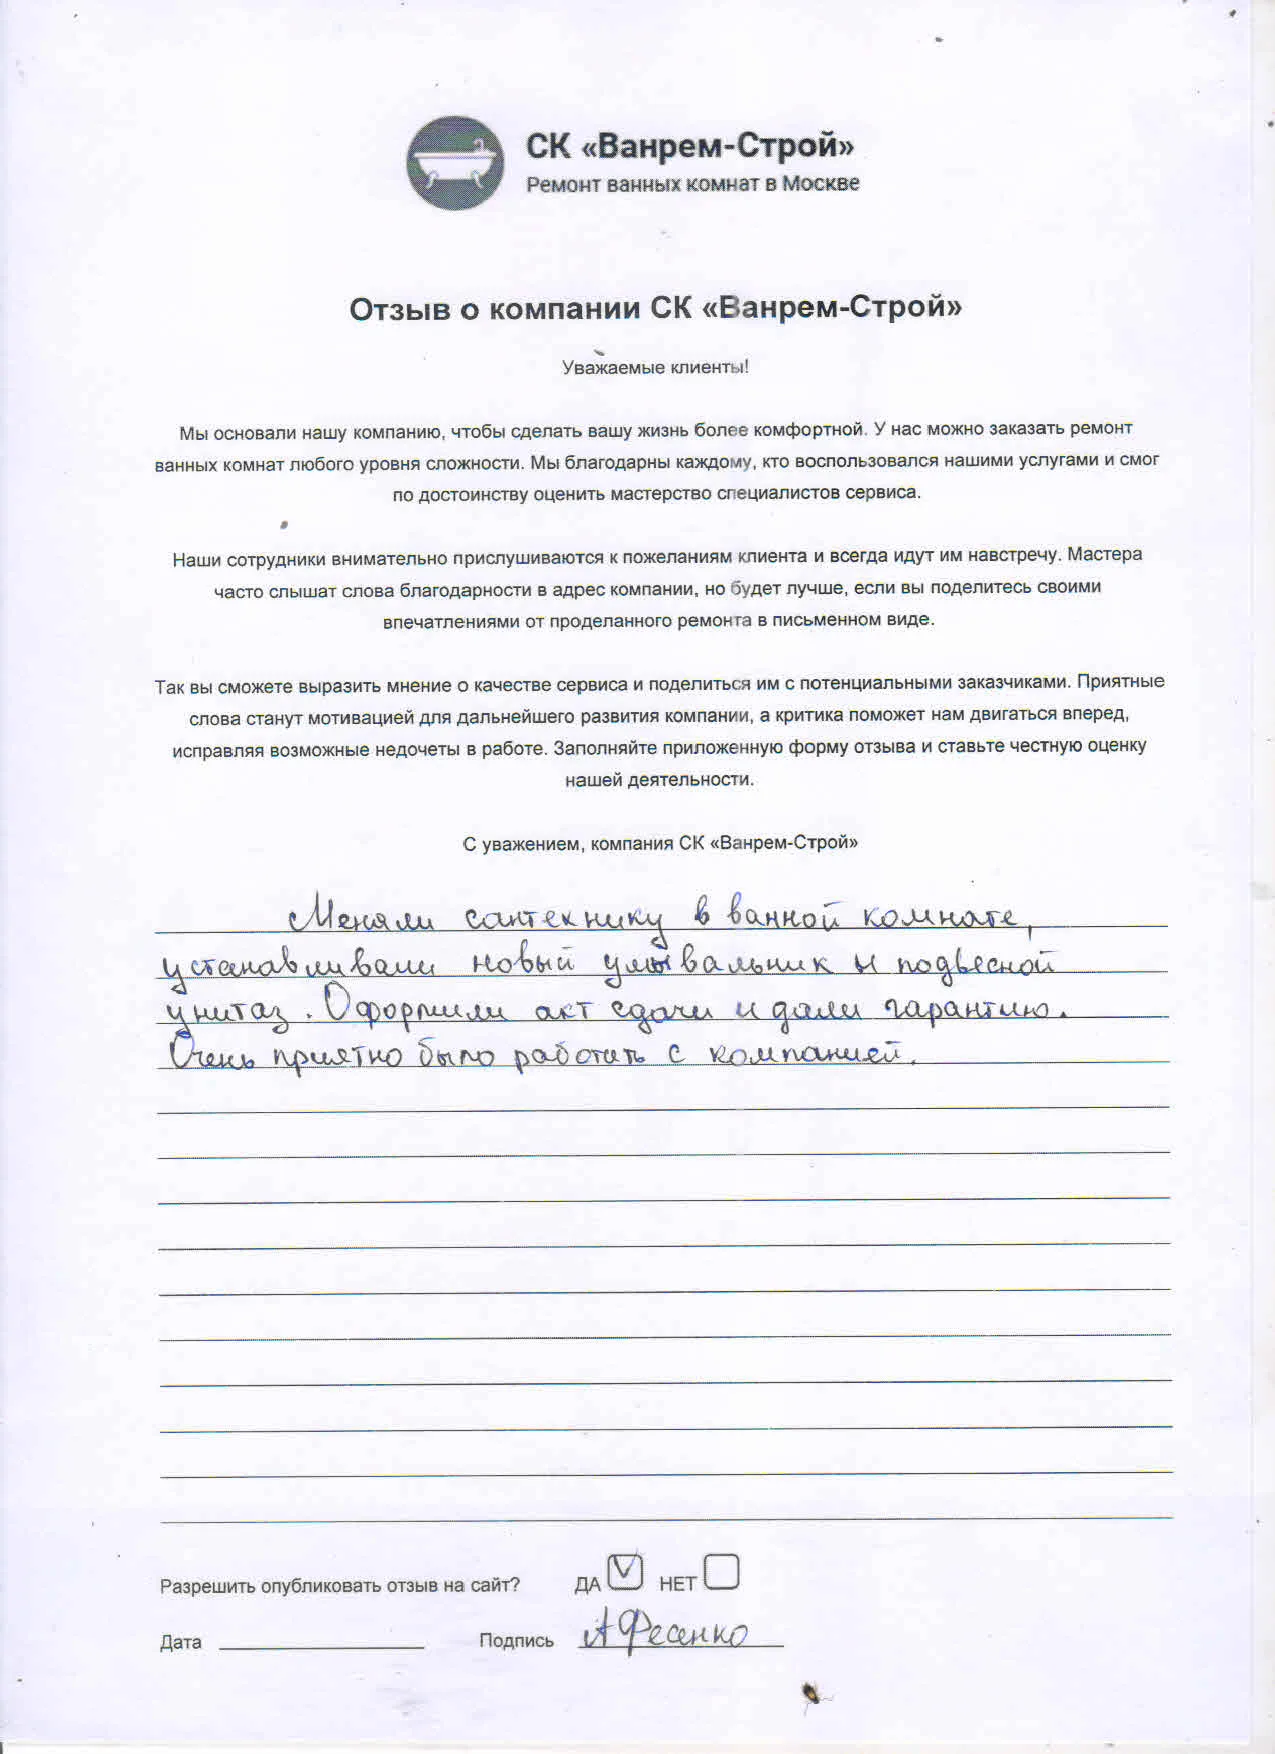 СК «Ванрем-Строй»
Ремонт ванных комнат в Москве
Отзыв о компании СК «Ванрем-Строй»
Уважаемые клиенты!
Мы основали нашу компанию, чтобы сделать вашу жизнь более комфортной. У нас можно заказать ремонт
ванных комнат любого уровня сложности. Мы благодарны каждому, кто воспользовался нашими услугами и смог
по достоинству оценить мастерство специалистов сервиса.
Наши сотрудники внимательно прислушиваются к пожеланиям клиента и всегда идут им навстречу. Мастера
часто слышат слова благодарности в адрес компании, но будет лучше, если вы поделитесь своими
впечатлениями от проделанного ремонта в письменном виде.
Так вы сможете выразить мнение о качестве сервиса и поделиться им с потенциальными заказчиками. Приятные
слова станут мотивацией для дальнейшего развития компании, а критика поможет нам двигаться вперед,
исправляя возможные недочеты в работе. Заполняйте приложенную форму отзыва и ставьте честную оценку
нашей деятельности.
С уважением, компания СК «Ванрем-Строй»
Меняли сантехнику в ванной комнате,
устанавливали новый умывальник и подвесной
унитаз. Оформили акт сдачи и дали гарантию.
Очень приятно было работать с компанией.
Разрешить опубликовать отзыв на сайт? ДА НЕТ
Дата Подпись АФесенко